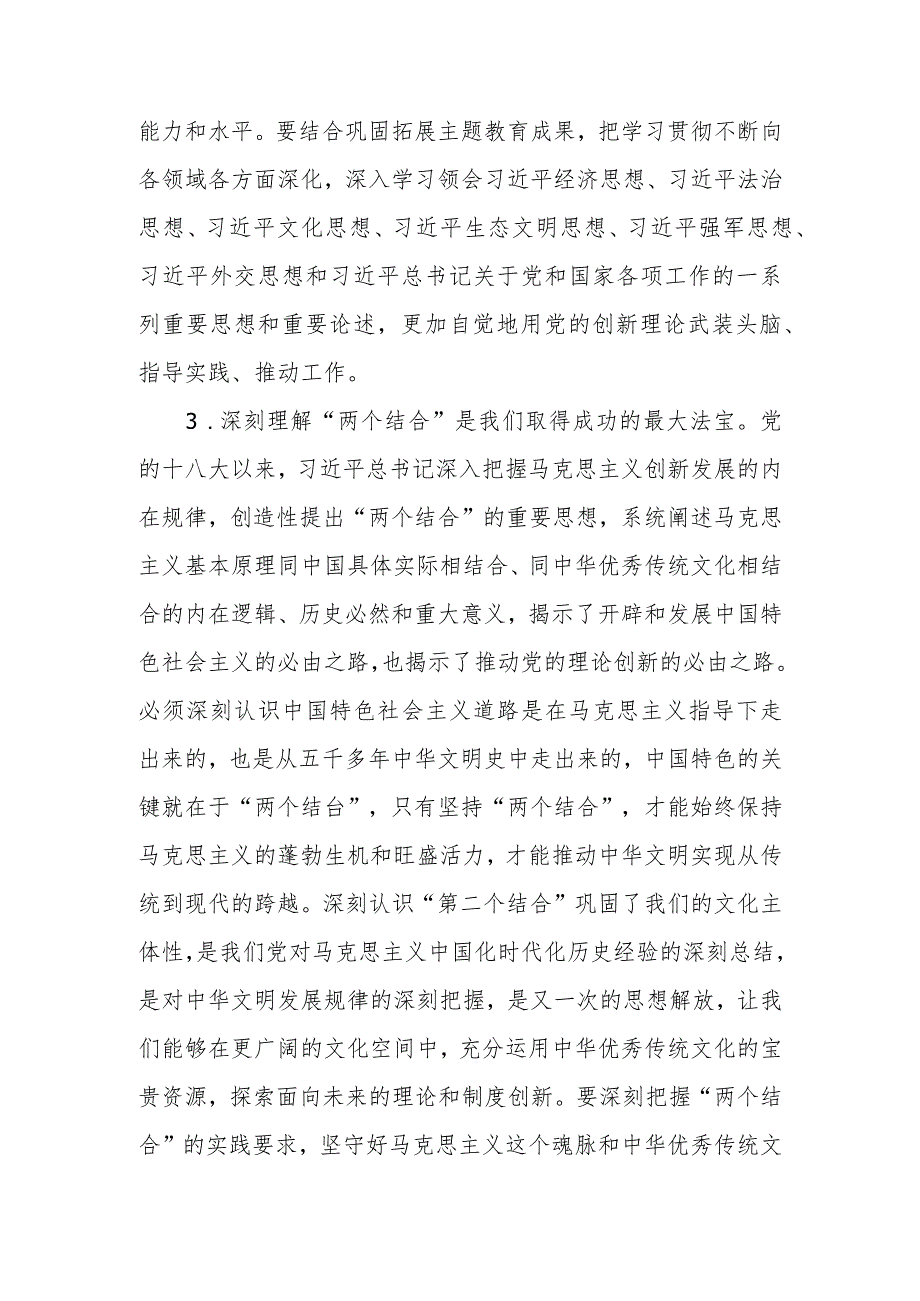 能力和水平。要结合巩固拓展主题教育成果，把学习贯彻不断向
各领域各方面深化，深入学习领会习近平经济思想、习近平法治
思想、习近平文化思想、习近平生态文明思想、习近平强军思想、
习近平外交思想和习近平总书记关于党和国家各项工作的一系
列重要思想和重要论述，更加自觉地用党的创新理论武装头脑、
指导实践、推动工作。
3.深刻理解“两个结合”是我们取得成功的最大法宝。党
的十八大以来，习近平总书记深入把握马克思主义创新发展的内
在规律，创造性提出“两个结合”的重要思想，系统阐述马克思
主义基本原理同中国具体实际相结合、同中华优秀传统文化相结
合的内在逻辑、历史必然和重大意义，揭示了开辟和发展中国特
色社会主义的必由之路，也揭示了推动党的理论创新的必由之路。
必须深刻认识中国特色社会主义道路是在马克思主义指导下走
出来的，也是从五千多年中华文明史中走出来的，中国特色的关
键就在于“两个结台”，只有坚持“两个结合”，才能始终保持
马克思主义的蓬勃生机和旺盛活力，才能推动中华文明实现从传
统到现代的跨越。深刻认识“第二个结合”巩固了我们的文化主
体性，是我们党对马克思主义中国化时代化历史经验的深刻总结，
是对中华文明发展规律的深刻把握，是又一次的思想解放，让我
们能够在更广阔的文化空间中，充分运用中华优秀传统文化的宝
贵资源，探索面向未来的理论和制度创新。要深刻把握“两个结
合”的实践要求，坚守好马克思主义这个魂脉和中华优秀传统文